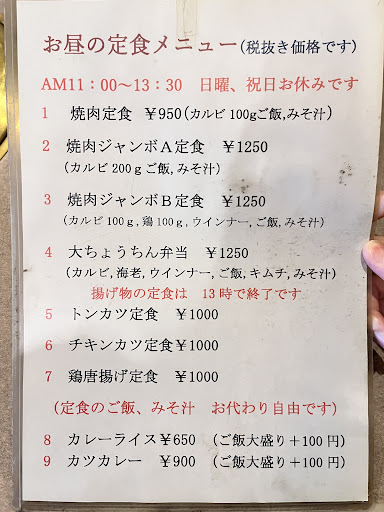 お昼の定食メニュー(税抜き価格です)
AM11：00～13：30　日曜、祝日お休みです
1　焼肉定食　￥950(カルビ 100gご飯,みそ汁)
2　焼肉ジャンボA定食　￥1250
(カルビ 200ｇご飯, みそ汁)
3　焼肉ジャンボB定食　￥1250
(カルビ 100ｇ, 鶏 100ｇ, ウインナー, ご飯, みそ汁)
4　大ちょうちん弁当　￥1250
(カルビ, 海老, ウインナー, ご飯, キムチ, みそ汁)
揚げ物の定食は　13 時で終了です
5　トンカツ定食　￥1000
6　チキンカツ定食￥1000
7　鶏唐揚げ定食　￥1000
(定食のご飯、みそ汁　お代わり自由です)
8　カレーライス￥650　(ご飯大盛り＋100 円)
9　カツカレー　￥900　(ご飯大盛り＋100 円)